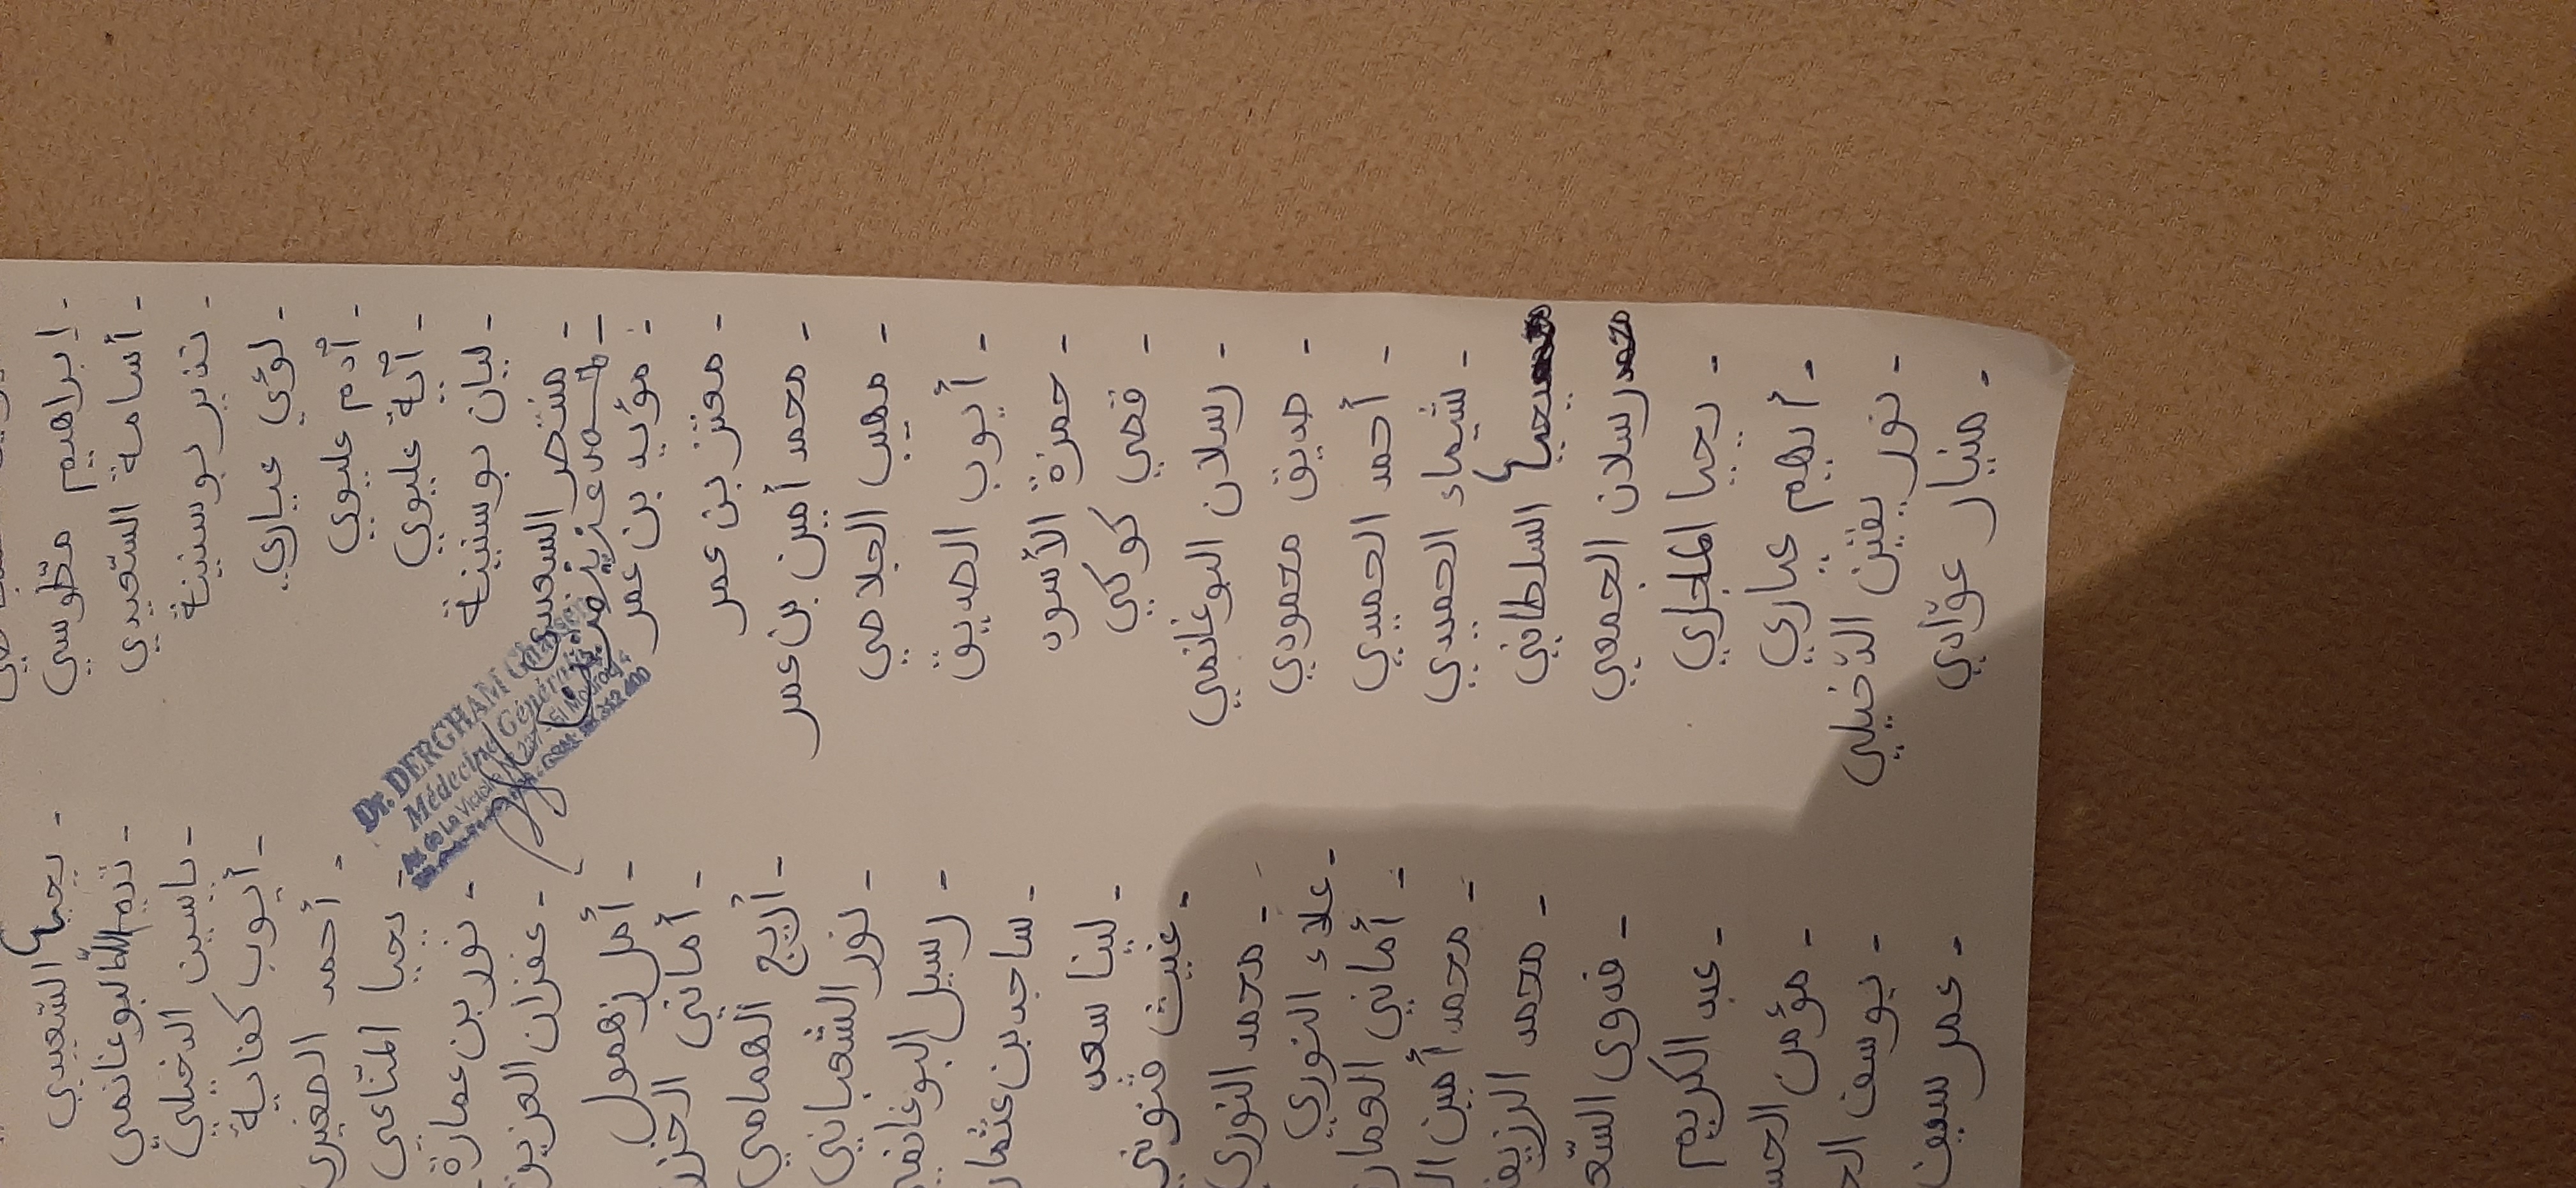 - إبراهيم مطّوسي
- أسامة السّعيدي
- نذير بوسنينة
- لؤي عياري
- أدم عليوي
- أية عليوي
- ليان بوسنينة
- منتصر السعيدي
- محمد عزيز
- مؤيد بن عمر
- معتز بن عمر
- محمد أمين بن عمر
- مهيب الجلاصي
- أيوب الصديق
- حمزة الأسود
- قصي كوكي
- رسلان البوغانمي
- صديق محمودي
- أحمد الحميدي
- شيماء الحميدي
السلطاني
رسلان الجمعي
- يحيا الماجري
- أيهم عياري
- نور يقين الدّخيلي
- ميار عوّادي
- يحيى السّعيدي
- تيم البوغانمي
- ياسين الدخيلي
- أيوب كفاية
- أحمد الصغيري
- يحيا المنّاعي
- نور بن عمارة
- غفران العزيز
- أمل زهمول
- أماني الخزر
- أريج الهمامي
- نور الشعباني
- رسيل البوغانمي
- ساجد بن عثمان
- لينا سعد
- غيث فتوتي
- محمد النوري
- علاء النوري
- أماني العمار
- محمد أمين ال
- محمد الرزيقي
- فدوى السّع
- عبد الكريم
- مؤمن الحس
- يوسف الح
- عمر سيف
Dr. DERGHAM
Médecine Générale
Av de La Victoire
El Mourouj